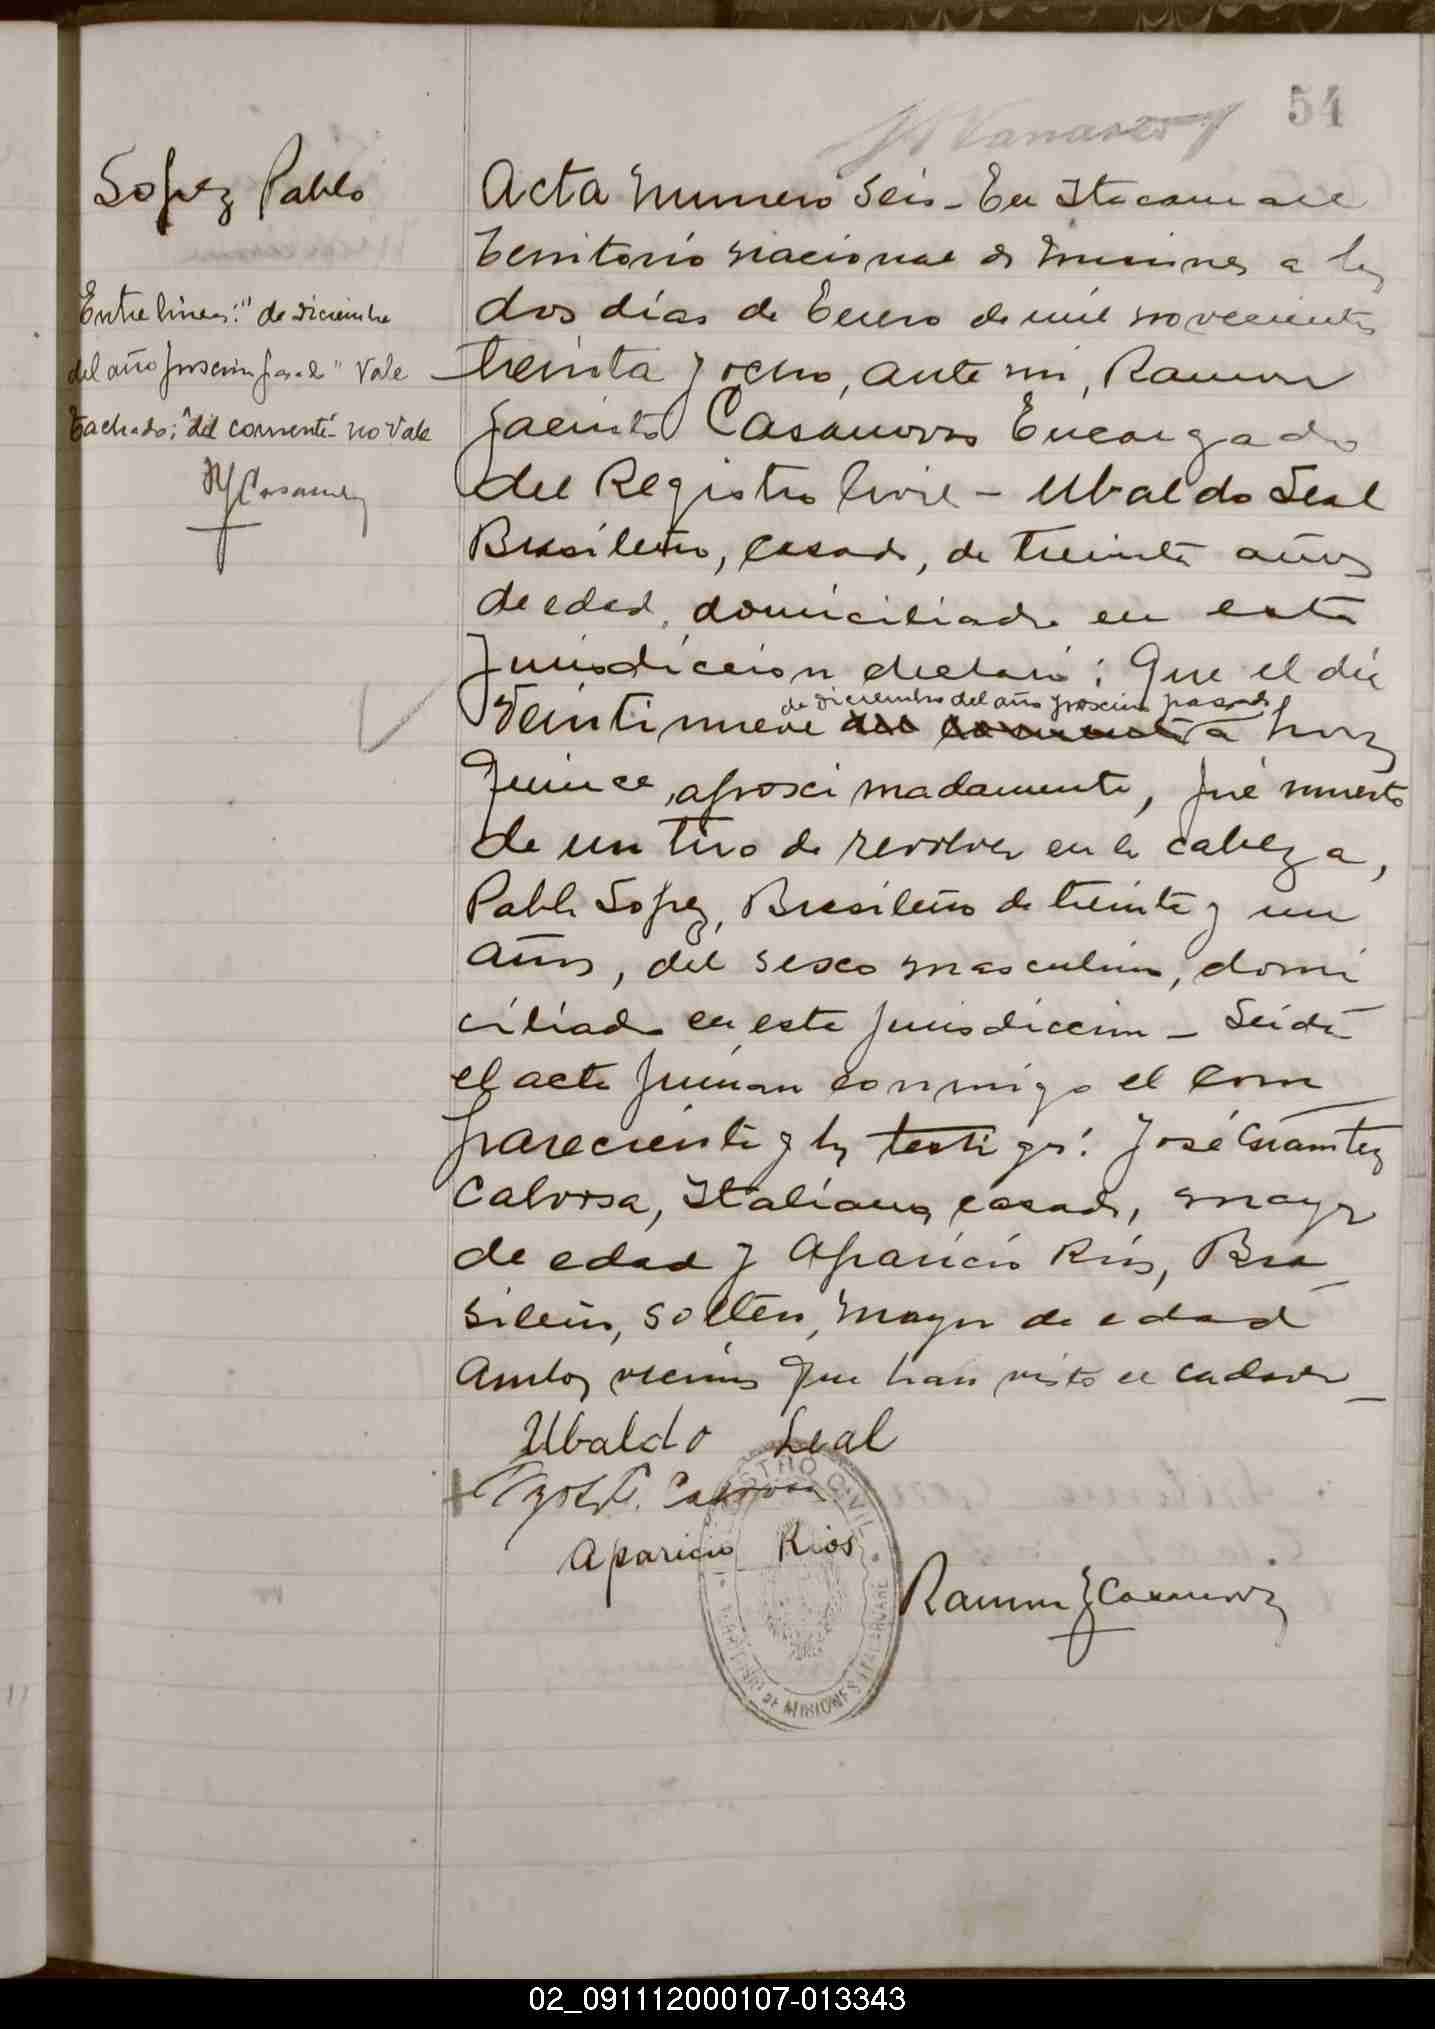 54
Lopez Pablo
Entre lineas: "de diciembre
del año proscimo pasado" Vale
Tachado; "del corriente" no vale
RJCasanova
Acta numero seis - En Itacaruaré
territorio nacional de misiones a los
dos días de Enero de mil novecientos
treinta y ocho, ante mi, Ramon
Jacinto Casanova Encargado
del Registro Civil - Ubaldo Leal
Brasileño, casado, de treinta años
de edad, domiciliado en esta
jurisdiccion declaró: Que el día
de diciembre del año proscimo pasado
Veintinueve del corriente a horas
quince, aproscimadamente, fué muerto
de un tiro de revolver en la cabeza,
Pablo Lopez, Brasileño de treinta y un
años, del sesco masculino, domi
ciliado en esta jurisdiccion - Leida
el acta firman conmigo el com
pareciente y los testigos: José
Calvosa, Italiano, casado, mayor
de edad y Aparicio Rios, Bra
sileño, soltero, mayor de edad
ambos vecinos que han visto el cadaver
Ubaldo Leal
Aparicio Rios
Ramon J Casanova
REGISTRO CIVIL
DE MISIONES ITACARUARE
02_091112000107-013343